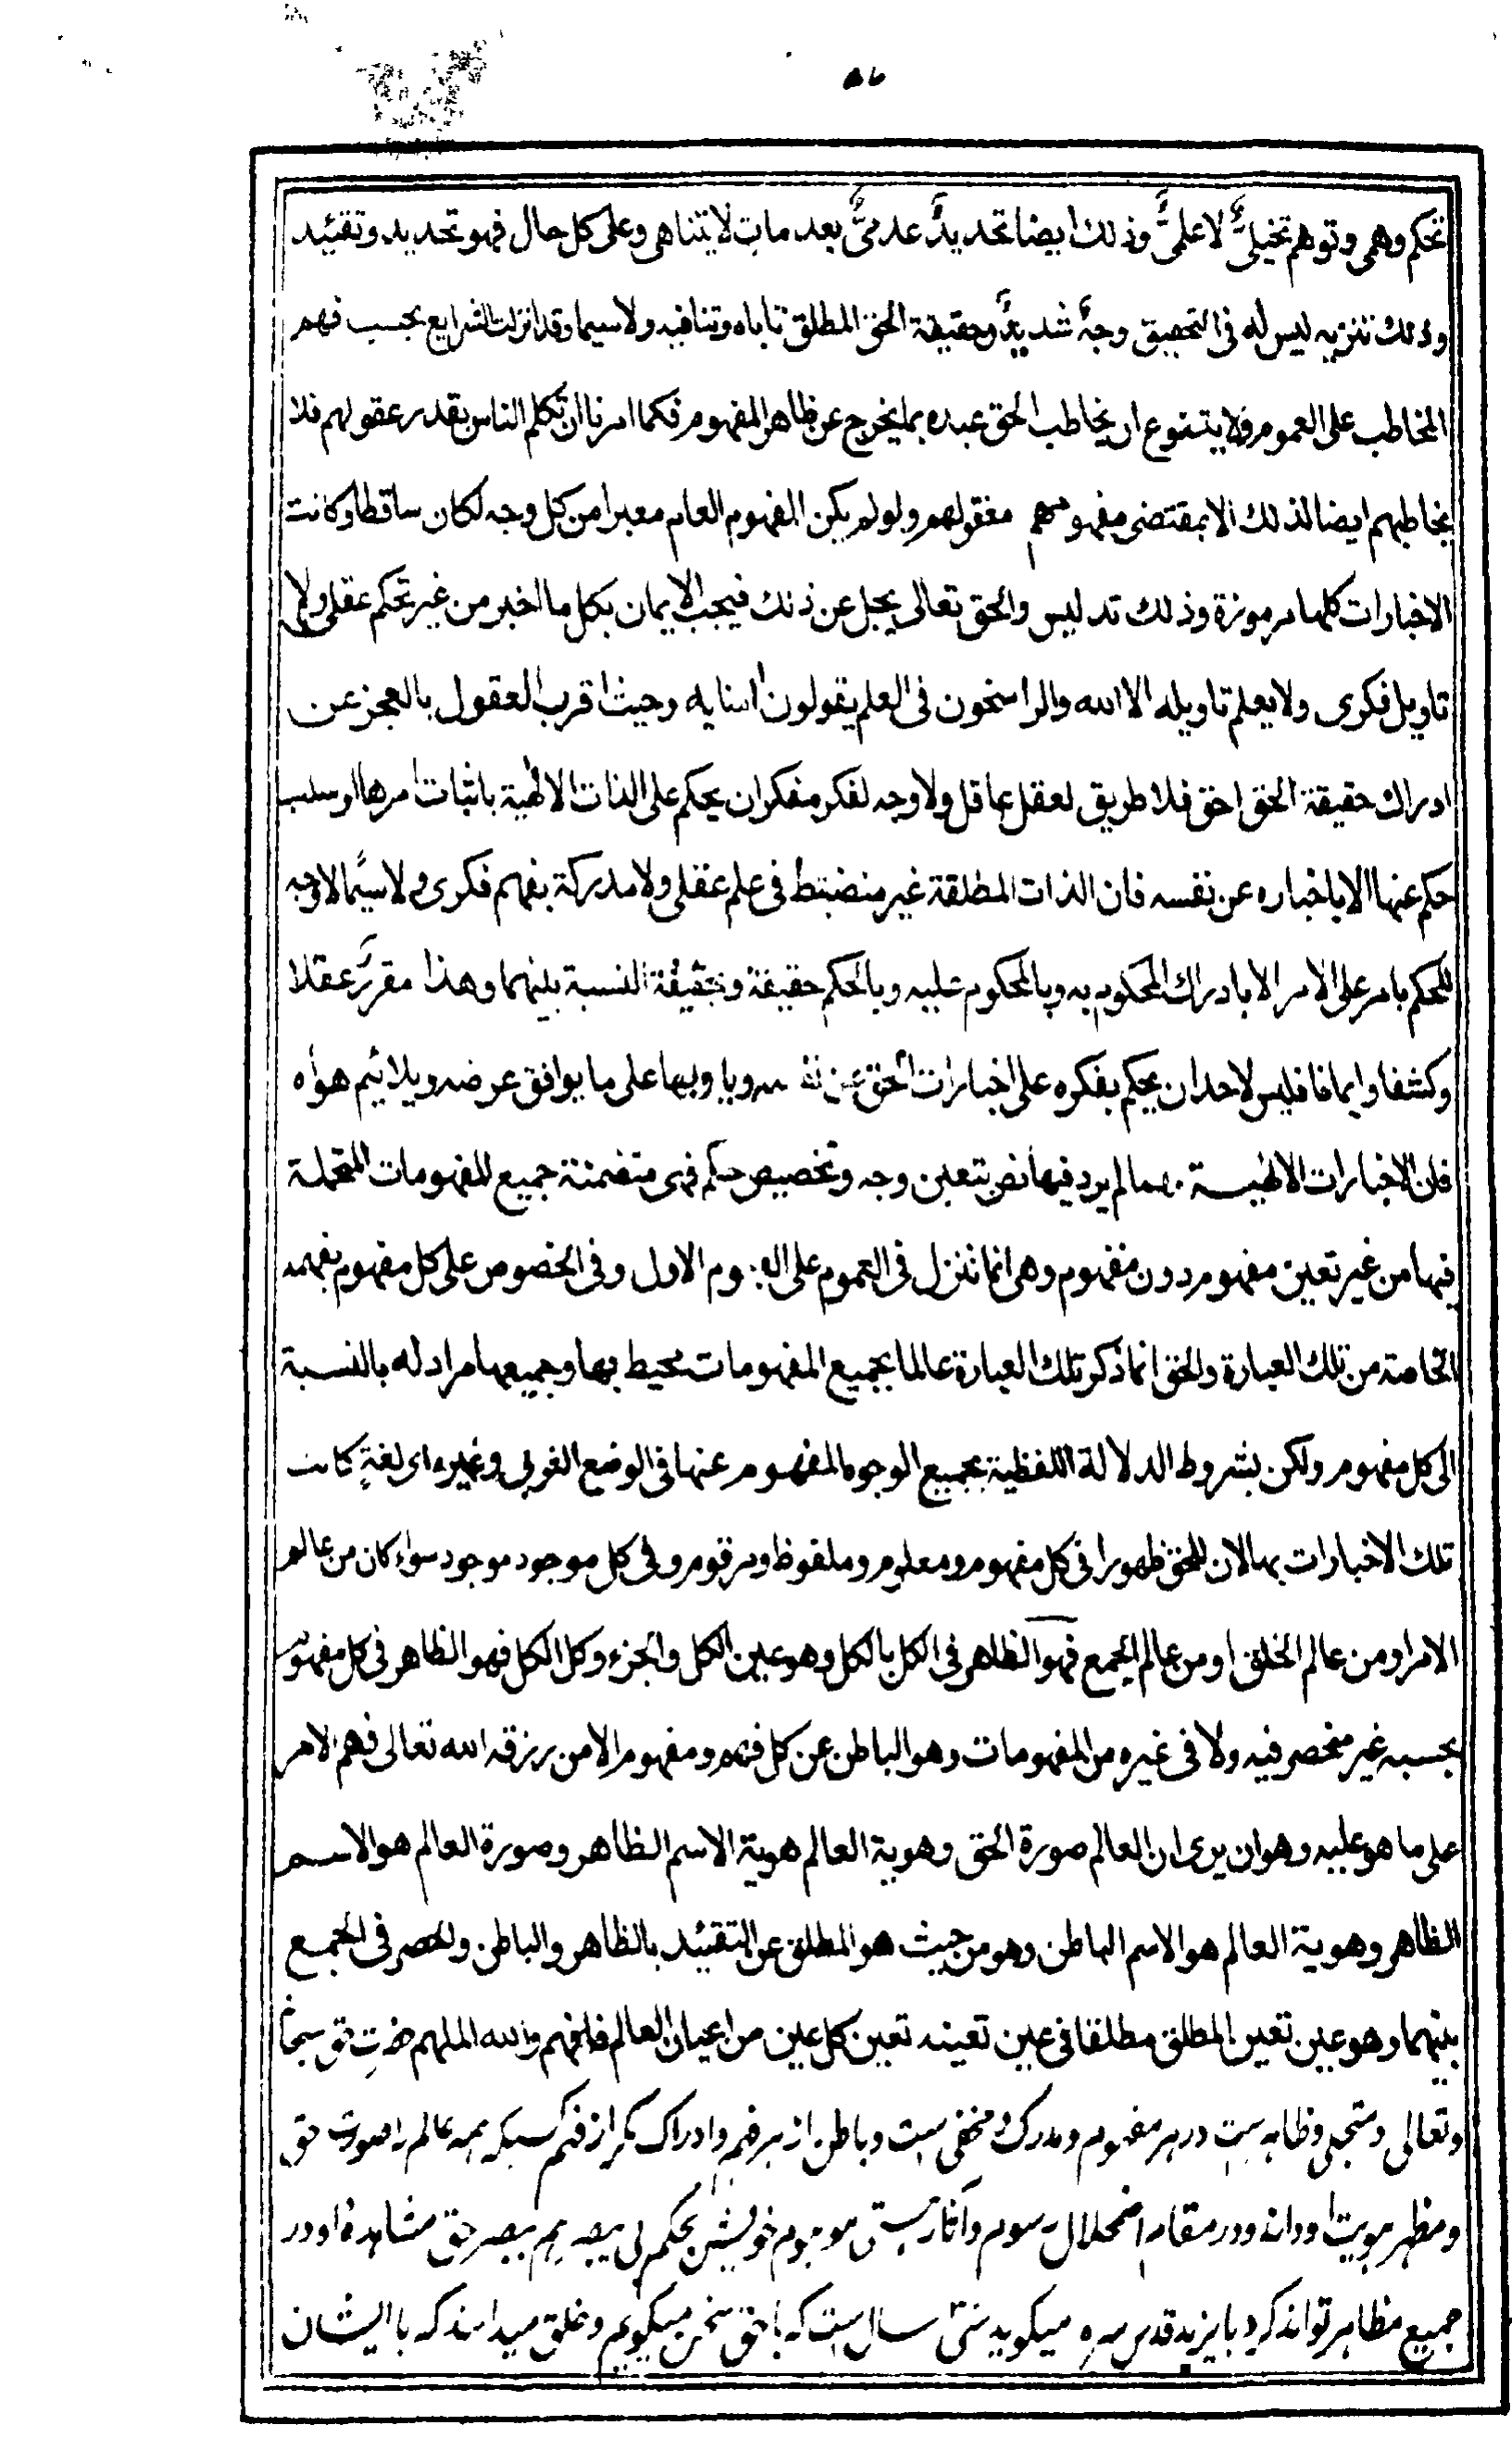 تحكم وهمى وتوهم تخيلىٌّ لا علمىٌّ وذلك ايضا تحديدٌ عدمىٌّ بعدمات لا يتناهى وعلى كل حال فهو تحديد وتقئيد
وذلك تنزيه ليس له فى التحقيق وجهٌ شديدٌ وحقيقة الحق المطلق تاباه وتنافيه ولا سيما وقد انزلت الشرايع بحسب فهم
المخاطب على العموم ولا يتنوع ان يخاطب الحق عبده بما يخرج عن ظاهر المفهوم فكما امرنا ان تكلم الناس بقدر عقولهم فلا
يخاطبهم ايضا لذلك الا بمقتضى مفهومهم معقولهم ولو لم يكن المفهوم العام معبرا من كل وجه لكان ساقطا وكانت
الاخبارات كلها مرموزة وذلك تدليس والحق تعالى يجل عن ذلك فيجب الايمان بكل ما اخبر من غير تحكم عقلى ولا
تاويل فكرى ولا يعلم تاويله الا الله والراسخون فى العلم يقولون امنا به وحيث اقرب العقول بالعجز عن
ادراك حقيقة الحق احق فلا طريق لعقل عاقل ولا وجه لفكر متفكر ان يحكم على الذات الالٰهية باثبات امر لها او سلب
حكم عنها الا باخباره عن نفسه فان الذات المطلقة غير منضبتط فى علم عقلى ولا مدركة بفهم فكرى ولا سيَّما لا وجه
للحكم بامر على الامر الا بادراك المحكوم به وبالمحكوم عليه وبالحكم حقيقة وحقيقة النسبة بينهما وهذا مقررٌ عقلا
وكشفا وايمانا فليس لاحد ان يحكم بفكره على اخبارات الحق عن نفسه وياوبها على ما يوافق عرضه ويلائيم هواه
فان الاخبارات الالٰهيسة مهما لم يرد فيها نص بتعين وجه وتخصيص حكم فهى متضمنة جميع المفهومات المحتملة
فيها من غير تعين مفهوم دون مفهوم وهى انما تنزل فى العموم على المفهوم الاول وفى الخصوص على كل مفهوم يفهمه
الخاصة من تلك العبارة والحق انما ذكر تلك العبارة عالما بجميع المفهومات محيط بها وجميعها مراد له بالنسبة
الى كل مفهوم ولكن بشروط الدلالة اللفظية بجميع الوجوه المفهوم عنها فى الوضع العربى وغيره اى لغةٍ كانت
تلك الاخبارات بها لان للحق ظهورا فى كل مفهوم ومعلوم وملفوظ ومرقوم وفى كل موجود موجود سواء كان من عالم
الامر او من عالم الخلق او من عالم الجمع فهو الظاهر فى الكل بالكل وهو عين الكل والجزء وكل الكل فهو الظاهر فى كل مفهوم
بحسبه غير منحصر فيه ولا فى غيره من المفهومات وهو الباطن عن كل فهم ومفهوم الا من رزقه الله تعالى فهم الامر
على ما هو عليه وهو ان يرى ان العالم صورة الحق وهوية العالم هوية الاسم الظاهر وصورة العالم هو الاسم
الظاهر وهوية العالم هو الاسم الباطن وهو من حيث هو المطلق عن التقئيد بالظاهر والباطن والحصر فى الجمع
بينهما وهو عين تعين المطلق مطلقا فى عين تعينه تعين كل عين من اعيان العالم فافهم والله الملهم حضرتِ حق سبحانه
وتعالى متجلى وظاهر ست در هر مفهوم ومدرك ومخفى ست وباطن از هر فهم وادراك مگر از فهم كسيكه همه عالم را صورت حق
ومظهر هويت او داند ودر مقام اضمحلال رسوم وآثار هستى موهوم خويش بحكم بى يبصر هم ببصر حق مشاهدهٔ او در
جميع مظاهر تواند كرد بايزيد قدس سره ميگويد سى سال ست كه با حق سخن ميگويم وخلق ميدانند كه با ايشان